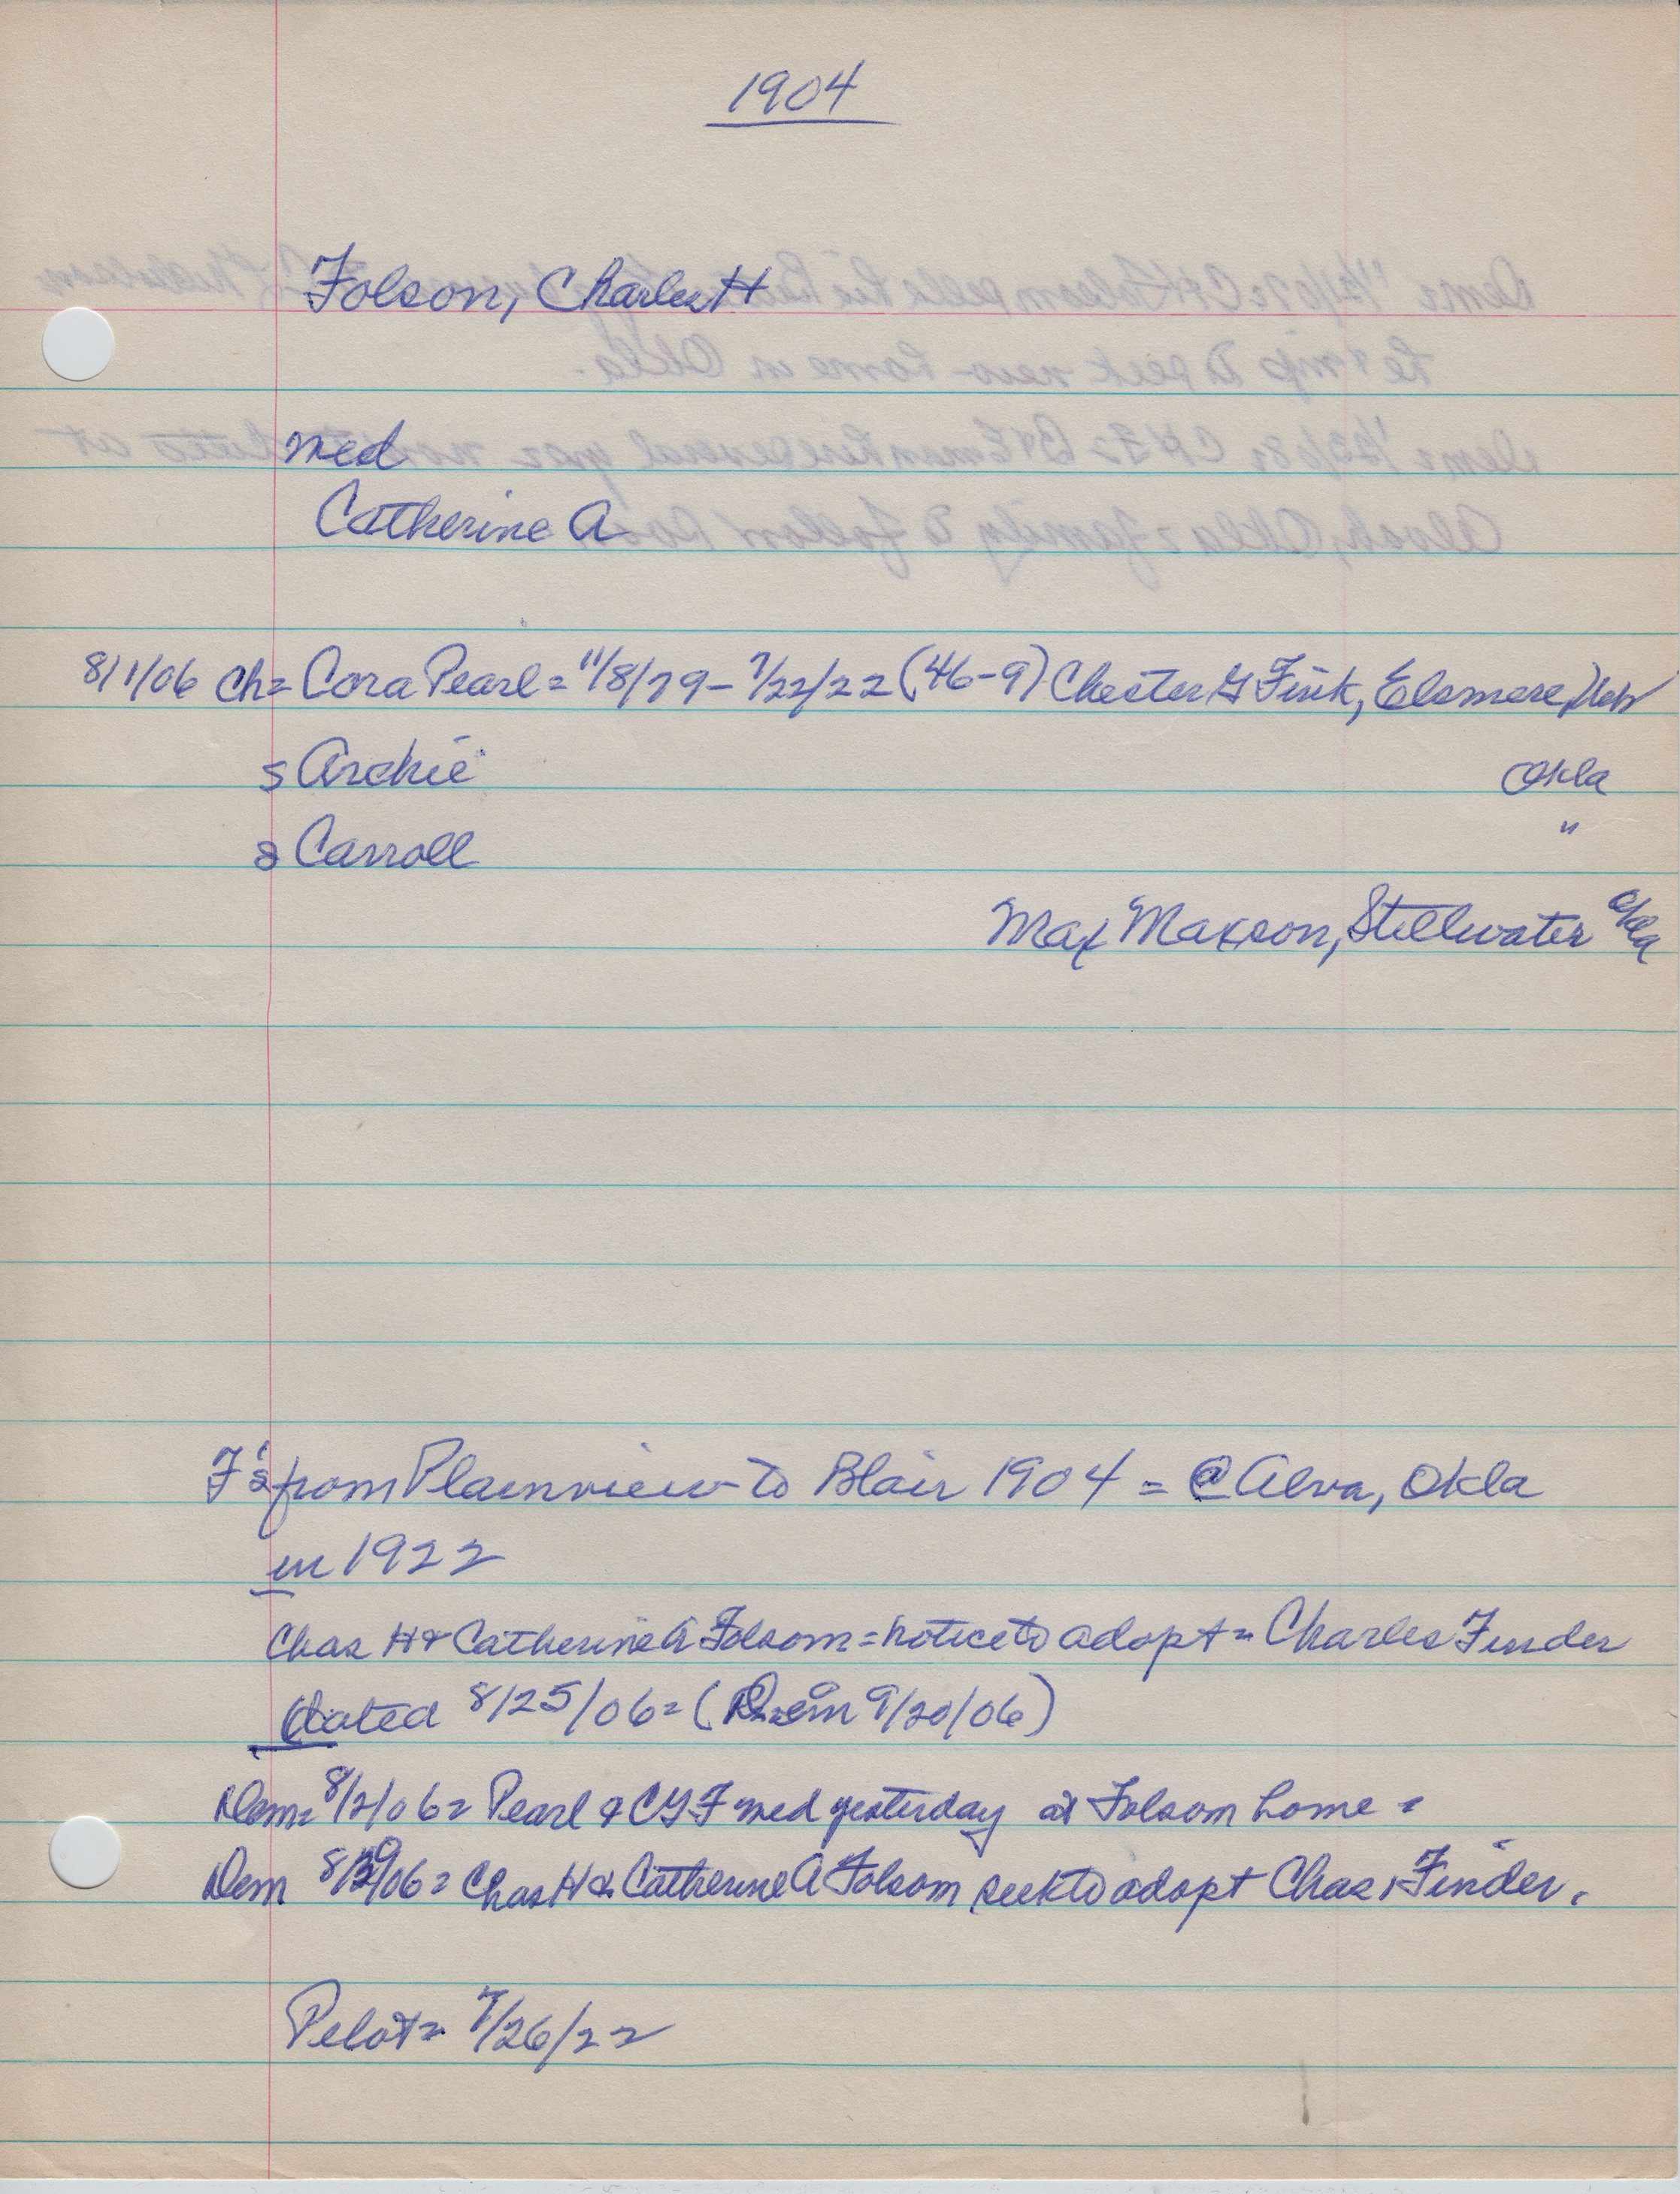 1904
Folson, Charles H
med
Catherine A
8/1/06 Ch= Cora Pearl = 11/8/79 - 7/22/22 (46-9) Chester G Fink, Elsmere, Neb
s Archie Okla
Carroll "
Max Maxson, Stillwater Okla
F's from Plainview to Blair 1904 = @ Alva, Okla
in 1922
Chas H & Catherine A Folsom = notice to adopt = Charles Finder
dated 8/25/06 = (Dem 9/20/06)
Dem= 8/2/06= Pearl & CGF med yesterday at Folsom home =
Dem 8/30/06= Chas H & Catherine A Folsom seek to adopt Chas Finder.
Pilot= 7/26/22